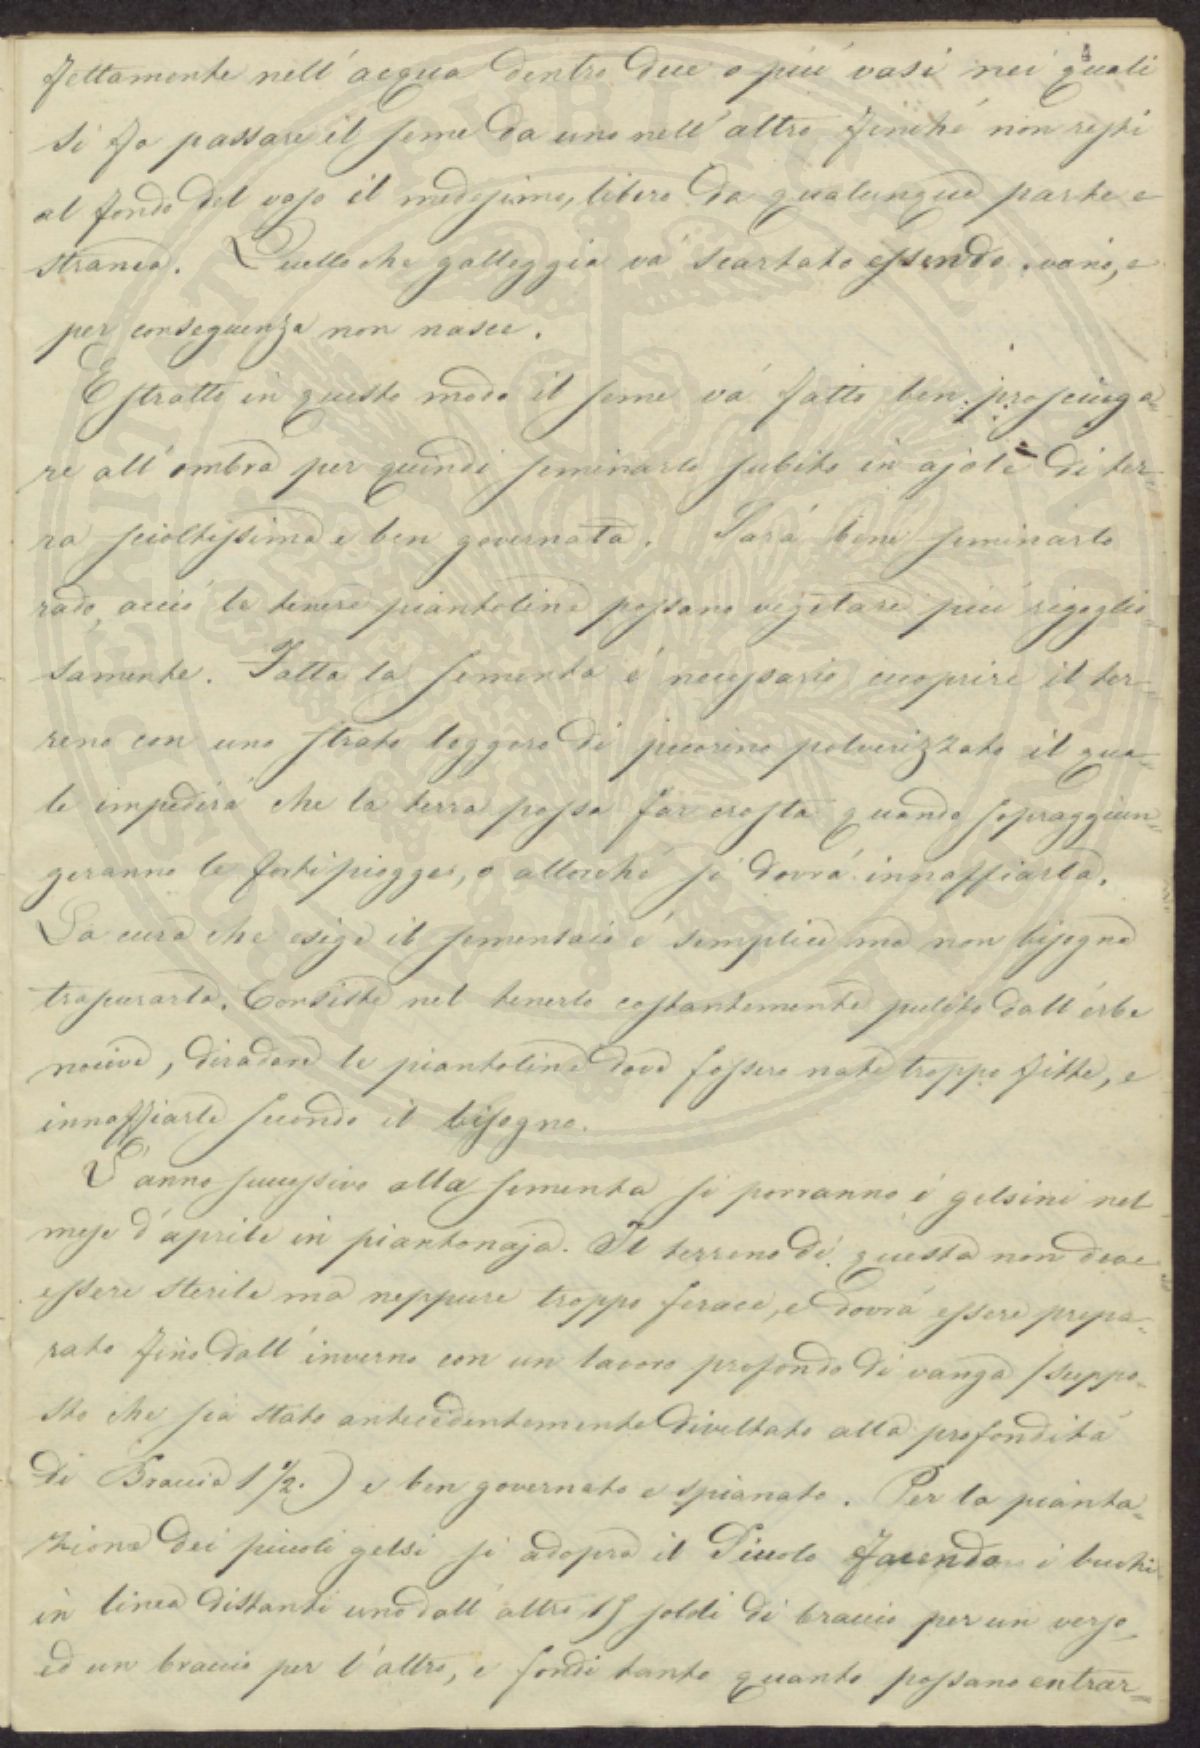 4
fettamente nell'acqua dentro due o più vasi nei quali
si fa passare il seme da uno nell'altro finché non resti
al fondo del vaso il medesimo, libero da qualunque parte e
stranea. Quello che galleggia và scartato essendo vano, e
per conseguenza non nasce.
Estratto in questo modo il seme và fatto ben prosciuga=
re all'ombra per quindi seminarlo subito in ajole di ter=
ra scioltissima e ben governata. Sarà bene seminarlo
rado, acciò le tenere piantoline possano vegetare più rigoglio=
samente. Fatta la sementa è necessario cuoprire il ter=
reno con uno strato leggero di pecorino polverizzato il qua=
le impedirà che la terra possa far crosta quando sopraggiun=
geranno le forti piogge, o allorché si dovrà innaffiarla.
La cura che esige il sementaio è semplice ma non bisogna
trascurarla. Consiste nel tenerlo costantemente pulito dall'erbe
nocive, diradare le piantoline dove fossero nate troppo fitte, e
innaffiarle secondo il bisogno.
L'anno successivo alla sementa si porranno i gelsini nel
mese d'aprile in piantonaja. Il terreno di questa non deve
essere sterile ma neppure troppo ferace, e dovrà essere prepa=
rato fino dall'inverno con un lavoro profondo di vanga (suppo=
sto che sia stato antecedentemente diveltato alla profondità
di Braccia 1 1/2.) e ben governato e spianato. Per la pianta=
zione dei piccoli gelsi si adopra il Piuolo facendo i buchi
in linea distanti uno dall'altro 15 soldi di braccio per un verso,
ed un braccio per l'altro, e fondi tanto quanto possano entrar=